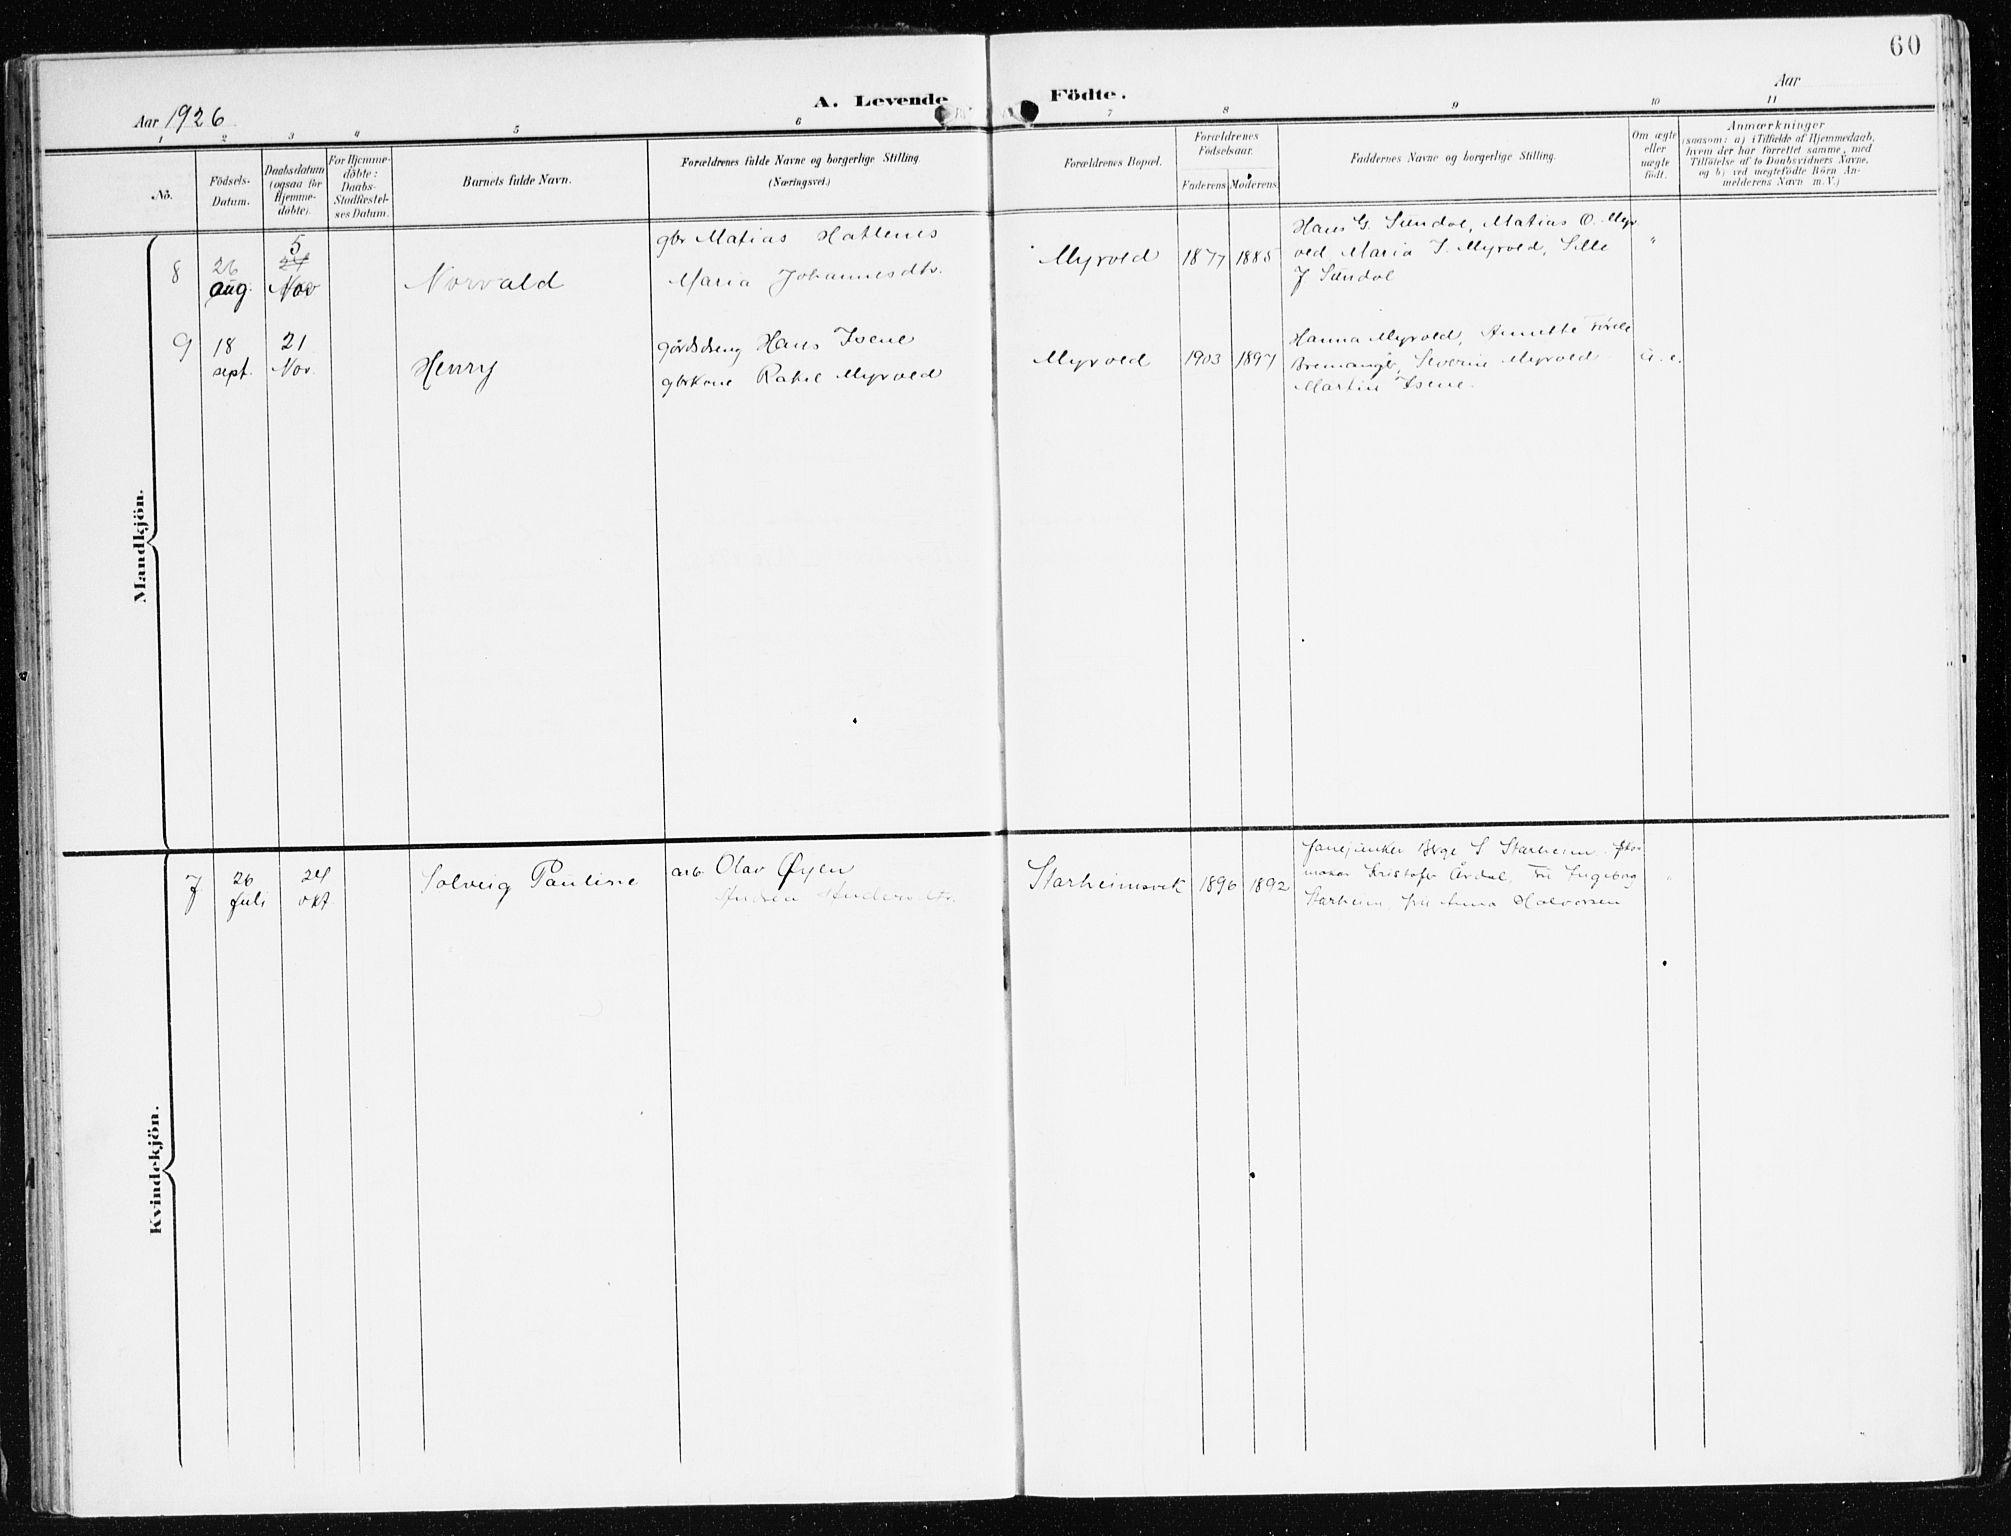 60
Aar 1926
A. Levende Födte.
Aar
1 2 3 4 5 6 7 8 9 10 11
No.
Födsels-Datum.
Daabsdatum (ogsaa for Hjemme-döbte).
For Hjemme-döbte: Daabs-Stadfæstel-ses Datum.
Barnets fulde Navn.
Forældrenes fulde Navne og borgerlige Stilling.
(Næringsvei.)
Forældrenes Bopæl.
Forældrenes Födselsaar.
Faderens. Moderens.
Faddernes Navne og borgerlige Stilling.
Om ægte eller uægte födt.
Anmærkninger
(saasom: a) i Tilfælde af Hjemmedaab,
hvem der har forrettet samme, med
Tilföielse af to Daabsvidners Navne,
og b) ved uægtefödte Börn An-
melderens Navn m. V.)
Mandkjön.
8
26 aug.
5
21
Nov
Norvald
gbr Matias Hatlenes
Maria Johannesdtr.
Myrvold
1877 1885
Hans G. Sundal, Matias O. Myr-
vold, Maria J. Myrvold, Sille
J Sundal
"
9
18 sept.
21 Nov.
Henry
gårdsdreng Hans Isene
gbrkone Rakel Myrvold
Myrvold
1903 1897
Hanna Myrvold, Annette
Bremanger, Severin Myrvold
Martin Isene.
u. e.
Kvindekjön.
7
26 juli
24 okt
Solveig Pauline
arb. Olav Øyen
Andrea Andersdtr.
Starheimsvik
1896 1892
fanejunker S Starheim,
maker Kristofer Årdal, Fru Ingeborg
Starheim, fru Anna Halvorsen
"